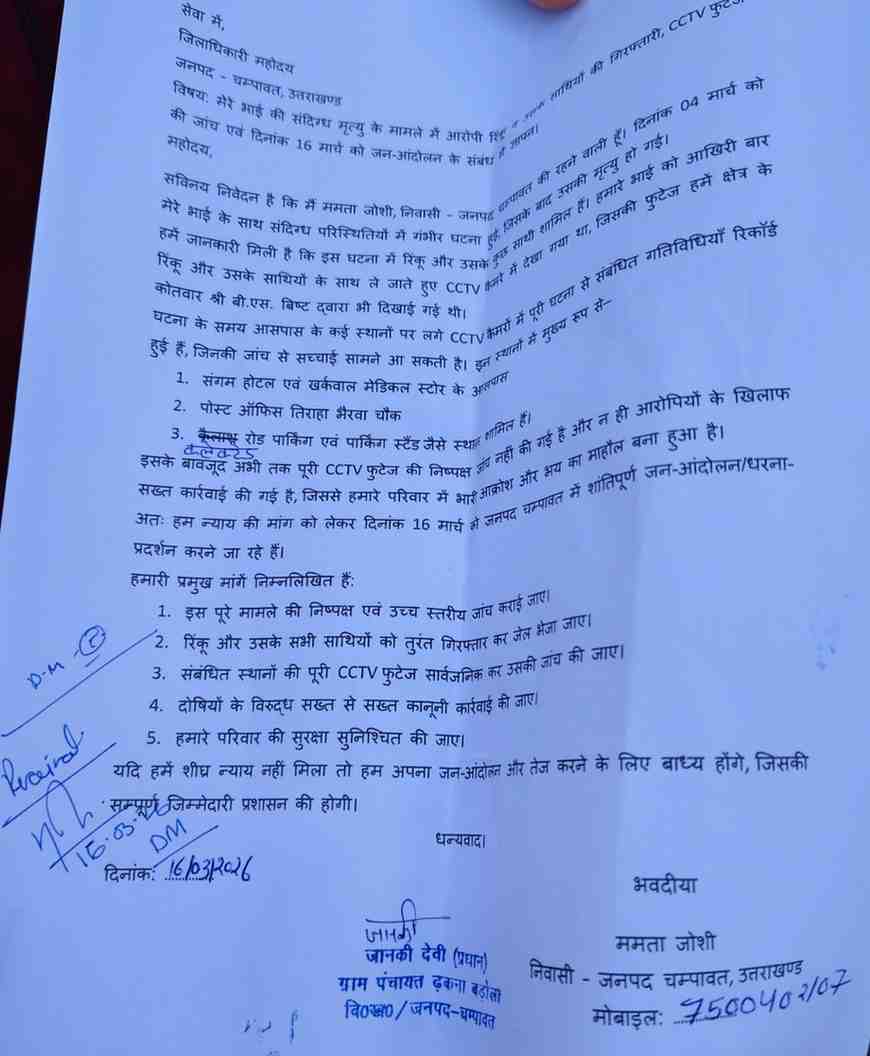 सेवा में,
जिलाधिकारी महोदय
जनपद - चम्पावत, उत्तराखण्ड
विषय: मेरे भाई की संदिग्ध मृत्यु के मामले में आरोपी रिंकू व उसके साथियों की गिरफ्तारी, CCTV फुटेज
की जांच एवं दिनांक 16 मार्च को जन-आंदोलन के संबंध में ज्ञापन।
महोदय,
सविनय निवेदन है कि मैं ममता जोशी, निवासी - जनपद चम्पावत की रहने वाली हूँ। दिनांक 04 मार्च को
मेरे भाई के साथ संदिग्ध परिस्थितियों में गंभीर घटना हुई, जिसके बाद उसकी मृत्यु हो गई।
हमें जानकारी मिली है कि इस घटना में रिंकू और उसके कुछ साथी शामिल हैं। हमारे भाई को आखिरी बार
रिंकू और उसके साथियों के साथ ले जाते हुए CCTV कैमरे में देखा गया था, जिसकी फुटेज हमें क्षेत्र के
कोतवार श्री बी.एस. बिष्ट द्वारा भी दिखाई गई थी।
घटना के समय आसपास के कई स्थानों पर लगे CCTV कैमरों में पूरी घटना से संबंधित गतिविधियाँ रिकॉर्ड
हुई हैं, जिनकी जांच से सच्चाई सामने आ सकती है। इन स्थानों में मुख्य रूप से–
1. संगम होटल एवं खर्कवाल मेडिकल स्टोर के आसपास
2. पोस्ट ऑफिस तिराहा भैरवा चौक
3. रोड पार्किंग एवं पार्किंग स्टैंड जैसे स्थान शामिल हैं।
इसके बावजूद अभी तक पूरी CCTV फुटेज की निष्पक्ष जांच नहीं की गई है और न ही आरोपियों के खिलाफ
सख्त कार्रवाई की गई है, जिससे हमारे परिवार में भारी आक्रोश और भय का माहौल बना हुआ है।
अतः हम न्याय की मांग को लेकर दिनांक 16 मार्च से जनपद चम्पावत में शांतिपूर्ण जन-आंदोलन/धरना-
प्रदर्शन करने जा रहे हैं।
हमारी प्रमुख मांगें निम्नलिखित हैं:
1. इस पूरे मामले की निष्पक्ष एवं उच्च स्तरीय जांच कराई जाए।
2. रिंकू और उसके सभी साथियों को तुरंत गिरफ्तार कर जेल भेजा जाए।
3. संबंधित स्थानों की पूरी CCTV फुटेज सार्वजनिक कर उसकी जांच की जाए।
4. दोषियों के विरुद्ध सख्त से सख्त कानूनी कार्रवाई की जाए।
5. हमारे परिवार की सुरक्षा सुनिश्चित की जाए।
यदि हमें शीघ्र न्याय नहीं मिला तो हम अपना जन-आंदोलन और तेज करने के लिए बाध्य होंगे, जिसकी
सम्पूर्ण जिम्मेदारी प्रशासन की होगी।
धन्यवाद।
D.M -
Received
16.03.26
DM
दिनांक: 16/03/2026
भवदीया
ममता जोशी
निवासी - जनपद चम्पावत, उत्तराखण्ड
मोबाइल: 7500402107
जानकी
जानकी देवी (प्रधान)
ग्राम पंचायत ढ़कना बड़ोला
वि०ख० / जनपद-चम्पावत